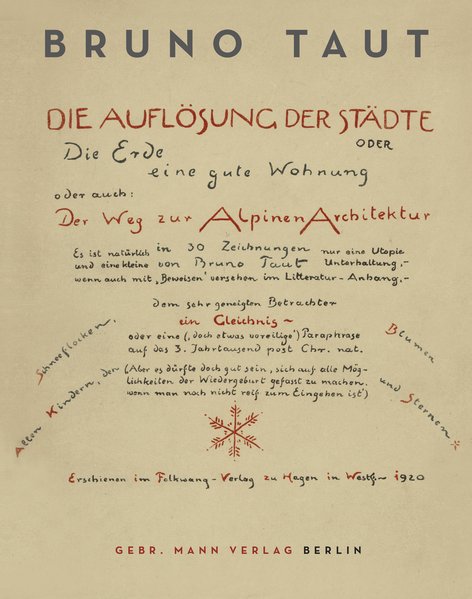 BRUNO TAUT
DIE AUFLÖSUNG DER STÄDTE
ODER
Die Erde
eine gute Wohnung
oder auch:
Der Weg zur Alpinen Architektur
Es ist natürlich in 30 Zeichnungen nur eine Utopie
und eine kleine von Bruno Taut Unterhaltung,-
wenn auch mit ‚Beweisen' versehen im Litteratur-Anhang,-
dem sehr geneigten Betrachter
ein Gleichnis ~
oder eine (‚doch etwas voreilige') Paraphrase
auf das 3. Jahrtausend post Chr. nat.
(Aber es dürfte doch gut sein, sich auf alle Mög-
lichkeiten der Wiedergeburt gefasst zu machen,
wenn man noch nicht reif zum Eingehen ist')
Allen Kindern, den Schneeflocken,
Blumen und Sternen
Erschienen im Folkwang-Verlag zu Hagen in Westf. ~ 1920
GEBR. MANN VERLAG BERLIN